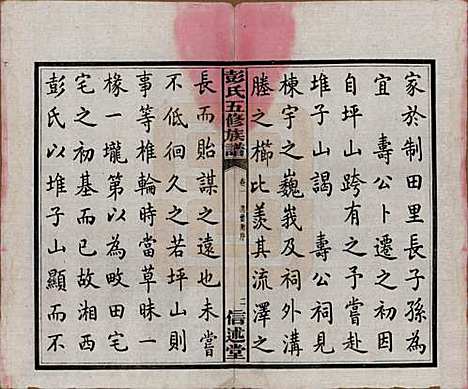 家於制田里長子孫為
宜壽公卜遷之初因
自坪山跨有之予嘗赴
堆子山謁壽公祠見
棟宇之巍峩及祠外溝
塍之櫛比羨其流澤之
彭氏五修族譜
卷一
二
信述堂
長而貽謀之遠也未嘗
不低徊久之若坪山則
事等椎輪時當草昧一
椽一壠第以為畋田宅
宅之初基而已故湘西
彭氏以堆子山顯而不